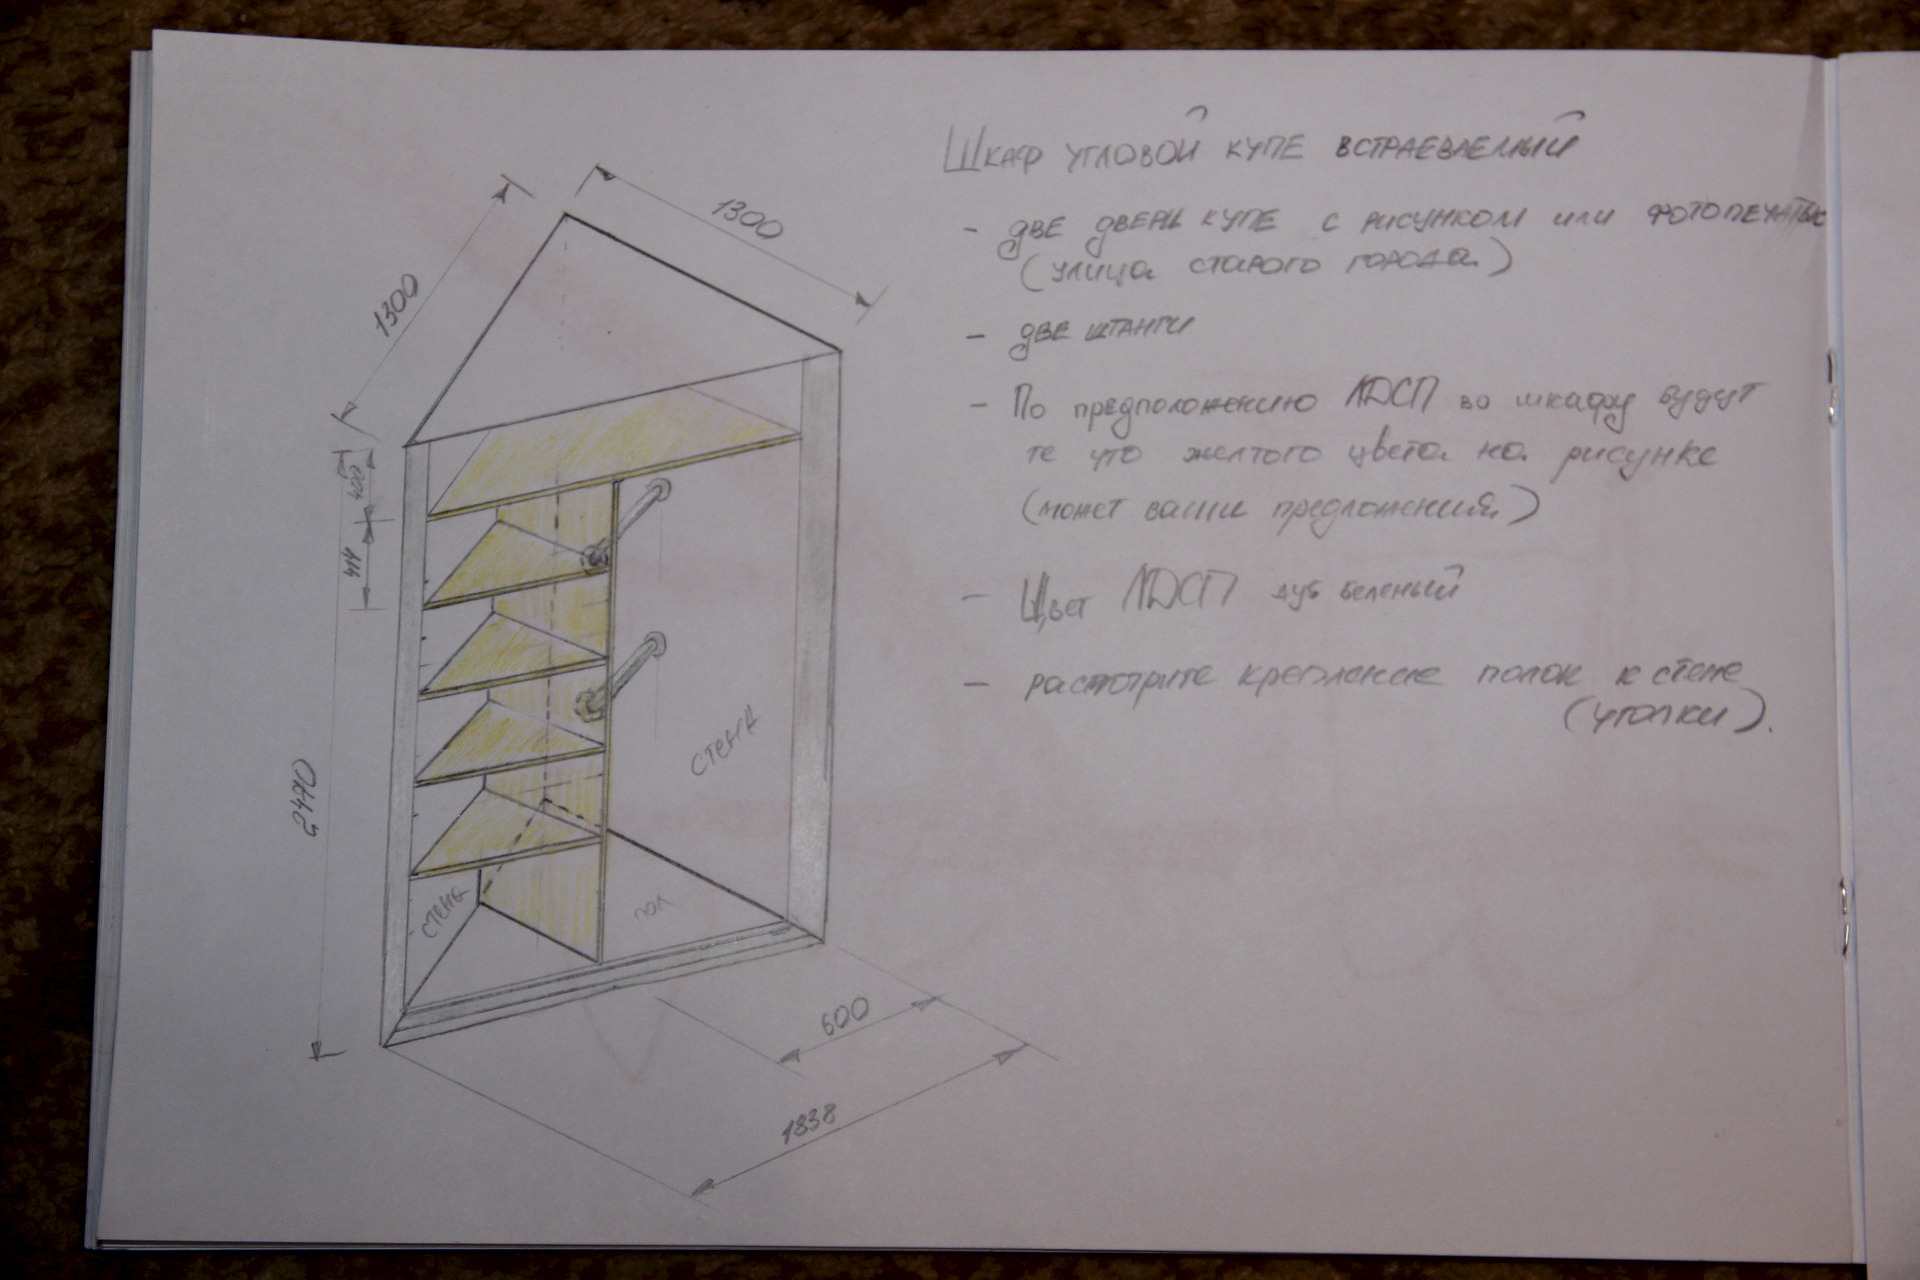 Шкаф угловой купе встраеваемый
- две двери купе с рисунком или фотопечатью
(улица старого города)
- две штанги
- По предположению ЛДСП во шкафу будут
те что желтого цвета на рисунке
(может ваши предложения)
- Цвет ЛДСП дуб беленый
- расмотрите крепление полок к стене
(уголки).
1300
1300
400
414
2470
стена
стена
пол
600
1838